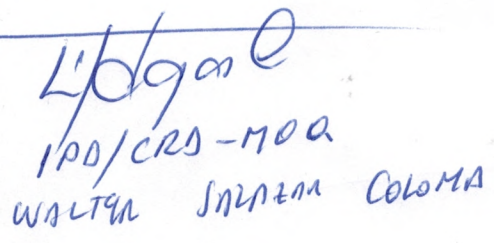 IPD/CRD-MOQ
WALTER SALAZAR COLOMA